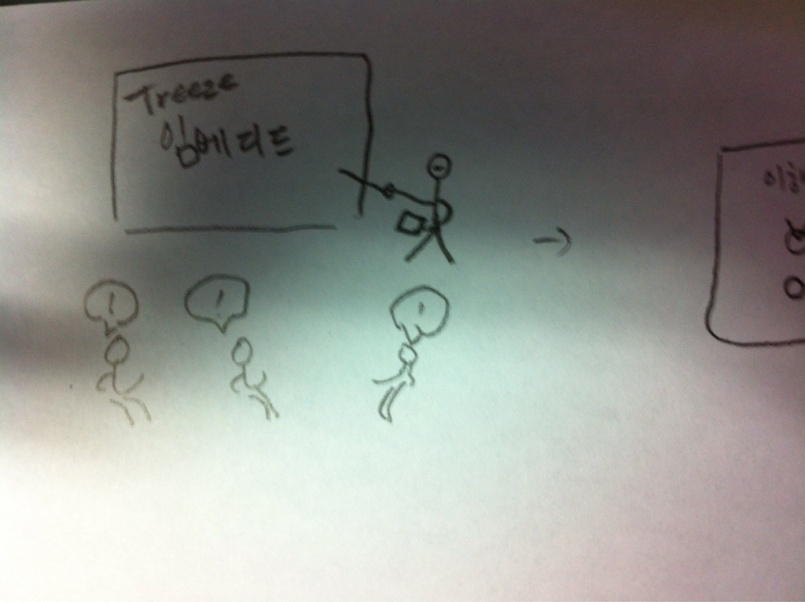 Treeze
임베디드
!
!
!
이해